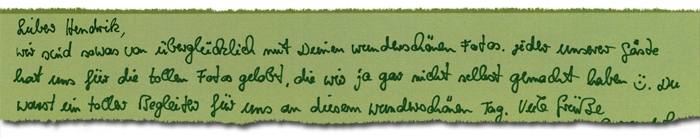 Lieber Hendrik,
wir sind sowas von überglücklich mit Deinen wunderschönen Fotos. jeder unserer Gäste
hat uns für die tollen Fotos gelobt, die wir ja gar nicht selbst gemacht haben ☺. Du
warst ein toller Begleiter für uns an diesem wunderschönen Tag. Viele Grüße